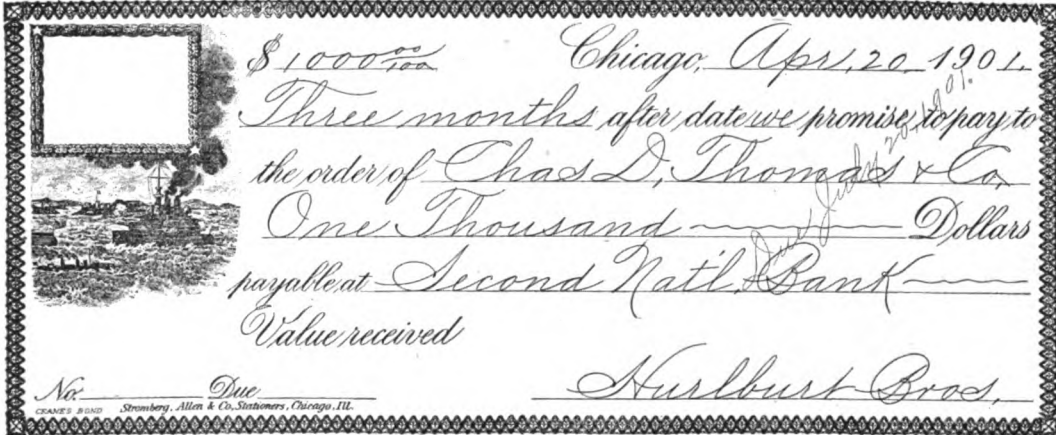 $1000 00/100 Chicago, Apr. 20 1901.
Three months after date we promise to pay to
the order of Chas D, Thomas & Co.
One Thousand Dollars
payable at Second Nat'l. Bank
Value received
Due July 20, 1901.
No. Due Hurlburt Bros.
CRANES BOND Stromberg, Allen & Co, Stationers, Chicago, Ill.